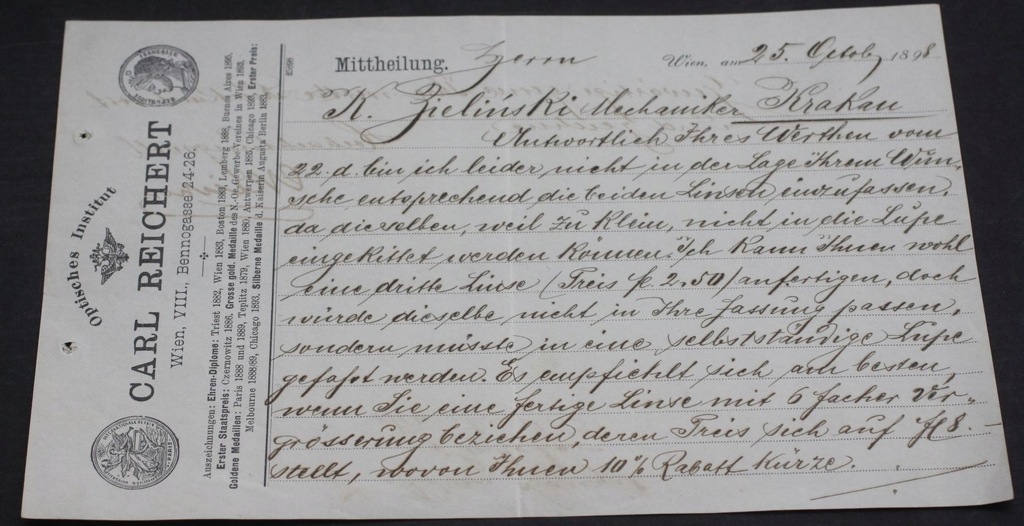 Optisches Institut
CARL REICHERT
Wien, VIII., Bennogasse 24-26.
Auszeichnungen: Ehren-Diplome: Triest 1882, Wien 1883, Boston 1883, Lemberg 1888, Buenos Aires 1890.
Erster Staatspreis: Czernowitz 1886. Grosse gold. Medaille des N.-Oe. Gewerbe-Vereines in Wien
Goldene Medaillen: Paris 1888 und 1889, Teplitz 1879, Wien 1880, Antwerpen 1885, Chicago 1893, Erster Preis:
Melbourne 1888/89, Chicago 1893, Silberne Medaille d. Kaiserin Augusta Berlin 1883.
Mittheilung. Herrn Wien, am 25. Octob 1898
K. Zielinski Mechaniker Krakau
Antwortlich Ihres Werthen vom
22. d. bin ich leider nicht in der Lage Ihrem Wun-
sche entsprechend die beiden Linsen einzufassen,
da dieselben, weil zu klein, nicht in die Lupe
eingekittet werden können. Ich kann Ihnen wohl
eine dritte Linse (Preis fl 2.50) anfertigen, doch
würde dieselbe nicht in Ihre Fassung passen,
sondern müsste in eine selbstständige Lupe
gefaßt werden. Es empfiehlt sich am besten,
wenn Sie eine fertige Linse mit 6 facher Ver-
grösserung beziehen, deren Preis sich auf fl 8.-
stellt, wovon Ihnen 10 % Rabatt kürze.